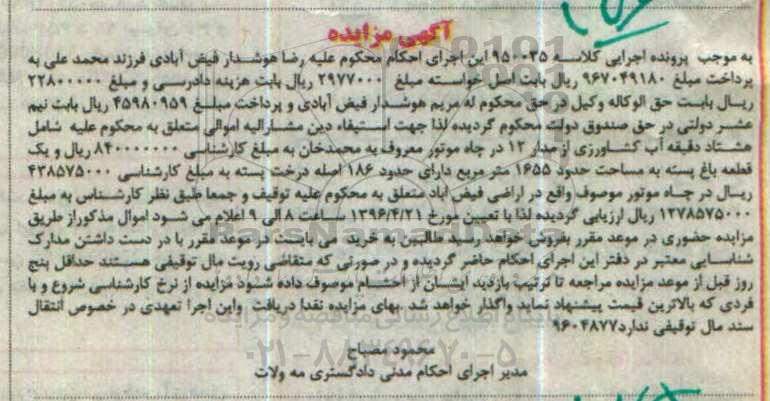 آگهی مزایده
به موجب پرونده اجرایی کلاسه ۹۵۰۰۳۵ این اجرای احکام محکوم علیه رضا هوشدار فیض آبادی فرزند محمد علی به
پرداخت مبلغ ۹۶۷۰۴۹۱۸۰ ریال بابت اصل خواسته مبلغ ۲۹۷۷۰۰۰ ریال بابت هزینه دادرسی و مبلغ ۲۲۸۰۰۰۰۰
ریال بابت حق الوکاله وکیل در حق محکوم له مریم هوشدار فیض آبادی و پرداخت مبلغ ۴۵۹۸۰۹۵۹ ریال بابت نیم
عشر دولتی در حق صندوق دولت محکوم گردیده لذا جهت استیفاء دین مشارالیه اموالی متعلق به محکوم علیه شامل
هشتاد دقیقه آب کشاورزی از مدار ۱۲ در چاه موتور معروف به محمدخان به مبلغ کارشناسی ۸۴۰۰۰۰۰۰۰ ریال و یک
قطعه باغ پسته به مساحت حدود ۱۶۵۵ متر مربع دارای حدود ۱۸۶ اصله درخت پسته به مبلغ کارشناسی ۴۳۸۵۷۵۰۰۰
ریال در چاه موتور موصوف واقع در اراضی فیض اباد متعلق به محکوم علیه توقیف و جمعا طبق نظر کارشناس به مبلغ
۱۲۷۸۵۷۵۰۰۰ ریال ارزیابی گردیده لذا با تعیین مورخ ۱۳۹۶/۴/۲۱ ساعت ۸ الی ۹ اعلام می شود اموال مذکور از طریق
مزایده حضوری در موعد مقرر بفروش خواهد رسید طالبین به خرید می بایست در موعد مقرر با در دست داشتن مدارک
شناسایی معتبر در دفتر این اجرای احکام حاضر گردیده و در صورتی که متقاضی رویت مال توقیفی هستند حداقل پنج
روز قبل از موعد مزایده مراجعه تا ترتیب بازدید ایشان از احشام موصوف داده شود مزایده از نرخ کارشناسی شروع و با
فردی که بالاترین قیمت پیشنهاد نماید واگذار خواهد شد بهای مزایده نقدا دریافت واین اجرا تعهدی در خصوص انتقال
سند مال توقیفی ندارد۹۶۰۴۸۷۷
محمود مصباح
مدیر اجرای احکام مدنی دادگستری مه ولات
ParsNamadData
۰۲۱-۸۸۳۴۹۶۷۰-۵